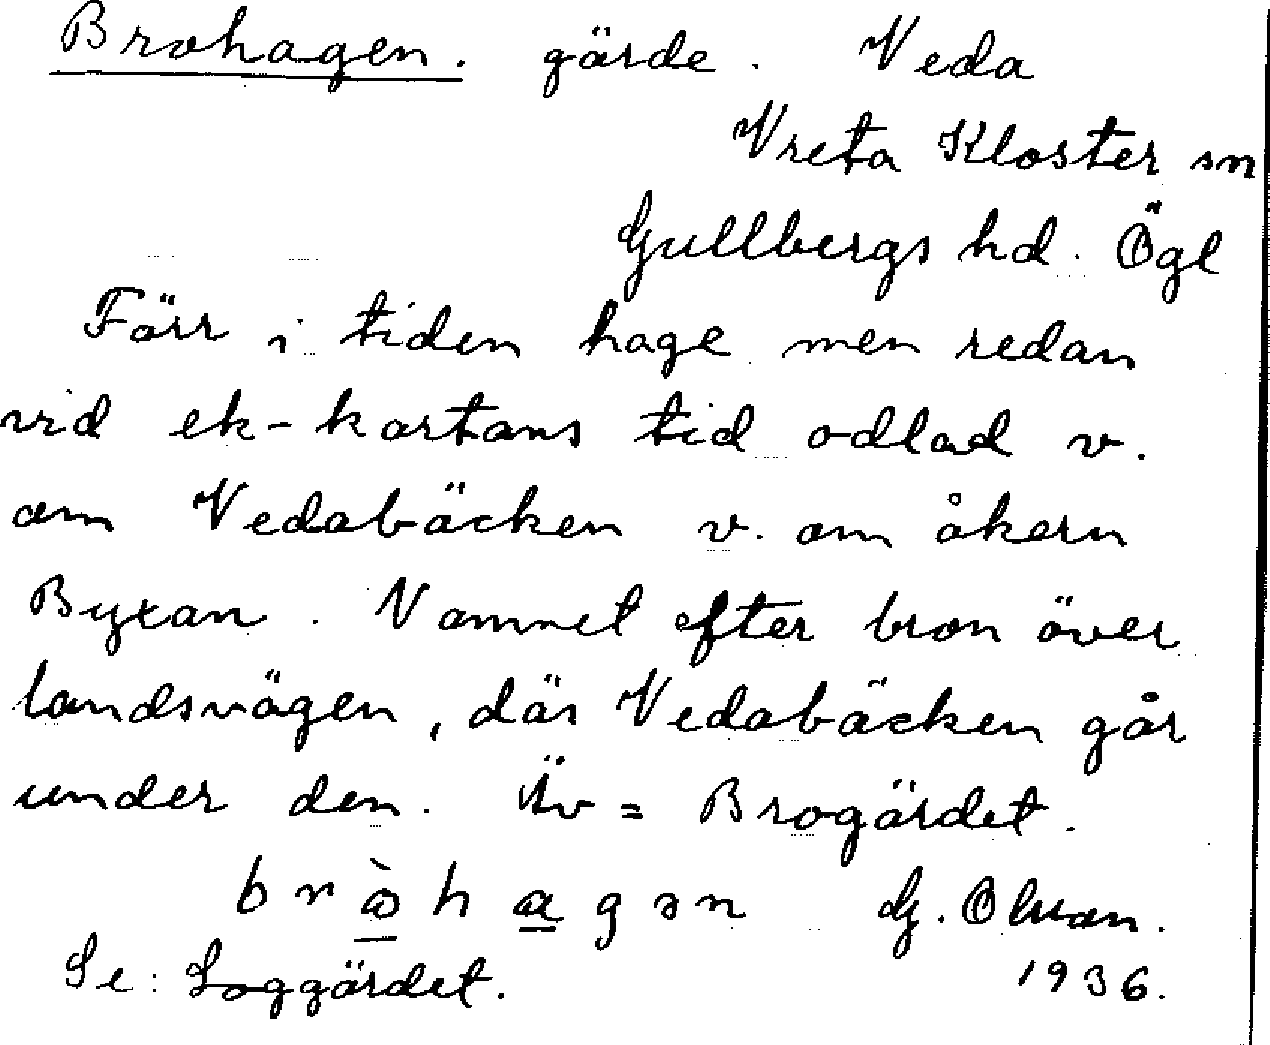 Brohagen. gärde. Veda
Vreta Kloster sn
Gullbergs hd. Ögl
Förr i tiden hage men redan
vid ek-kartans tid odlad v.
om Vedabäcken v. om åkern
Byxan. Namnet efter bron över
landsvägen, där Vedabäcken går
under den. Äv = Brogärdet.
bròhagən G. Olsson.
Se: Soggärdet. 1936.